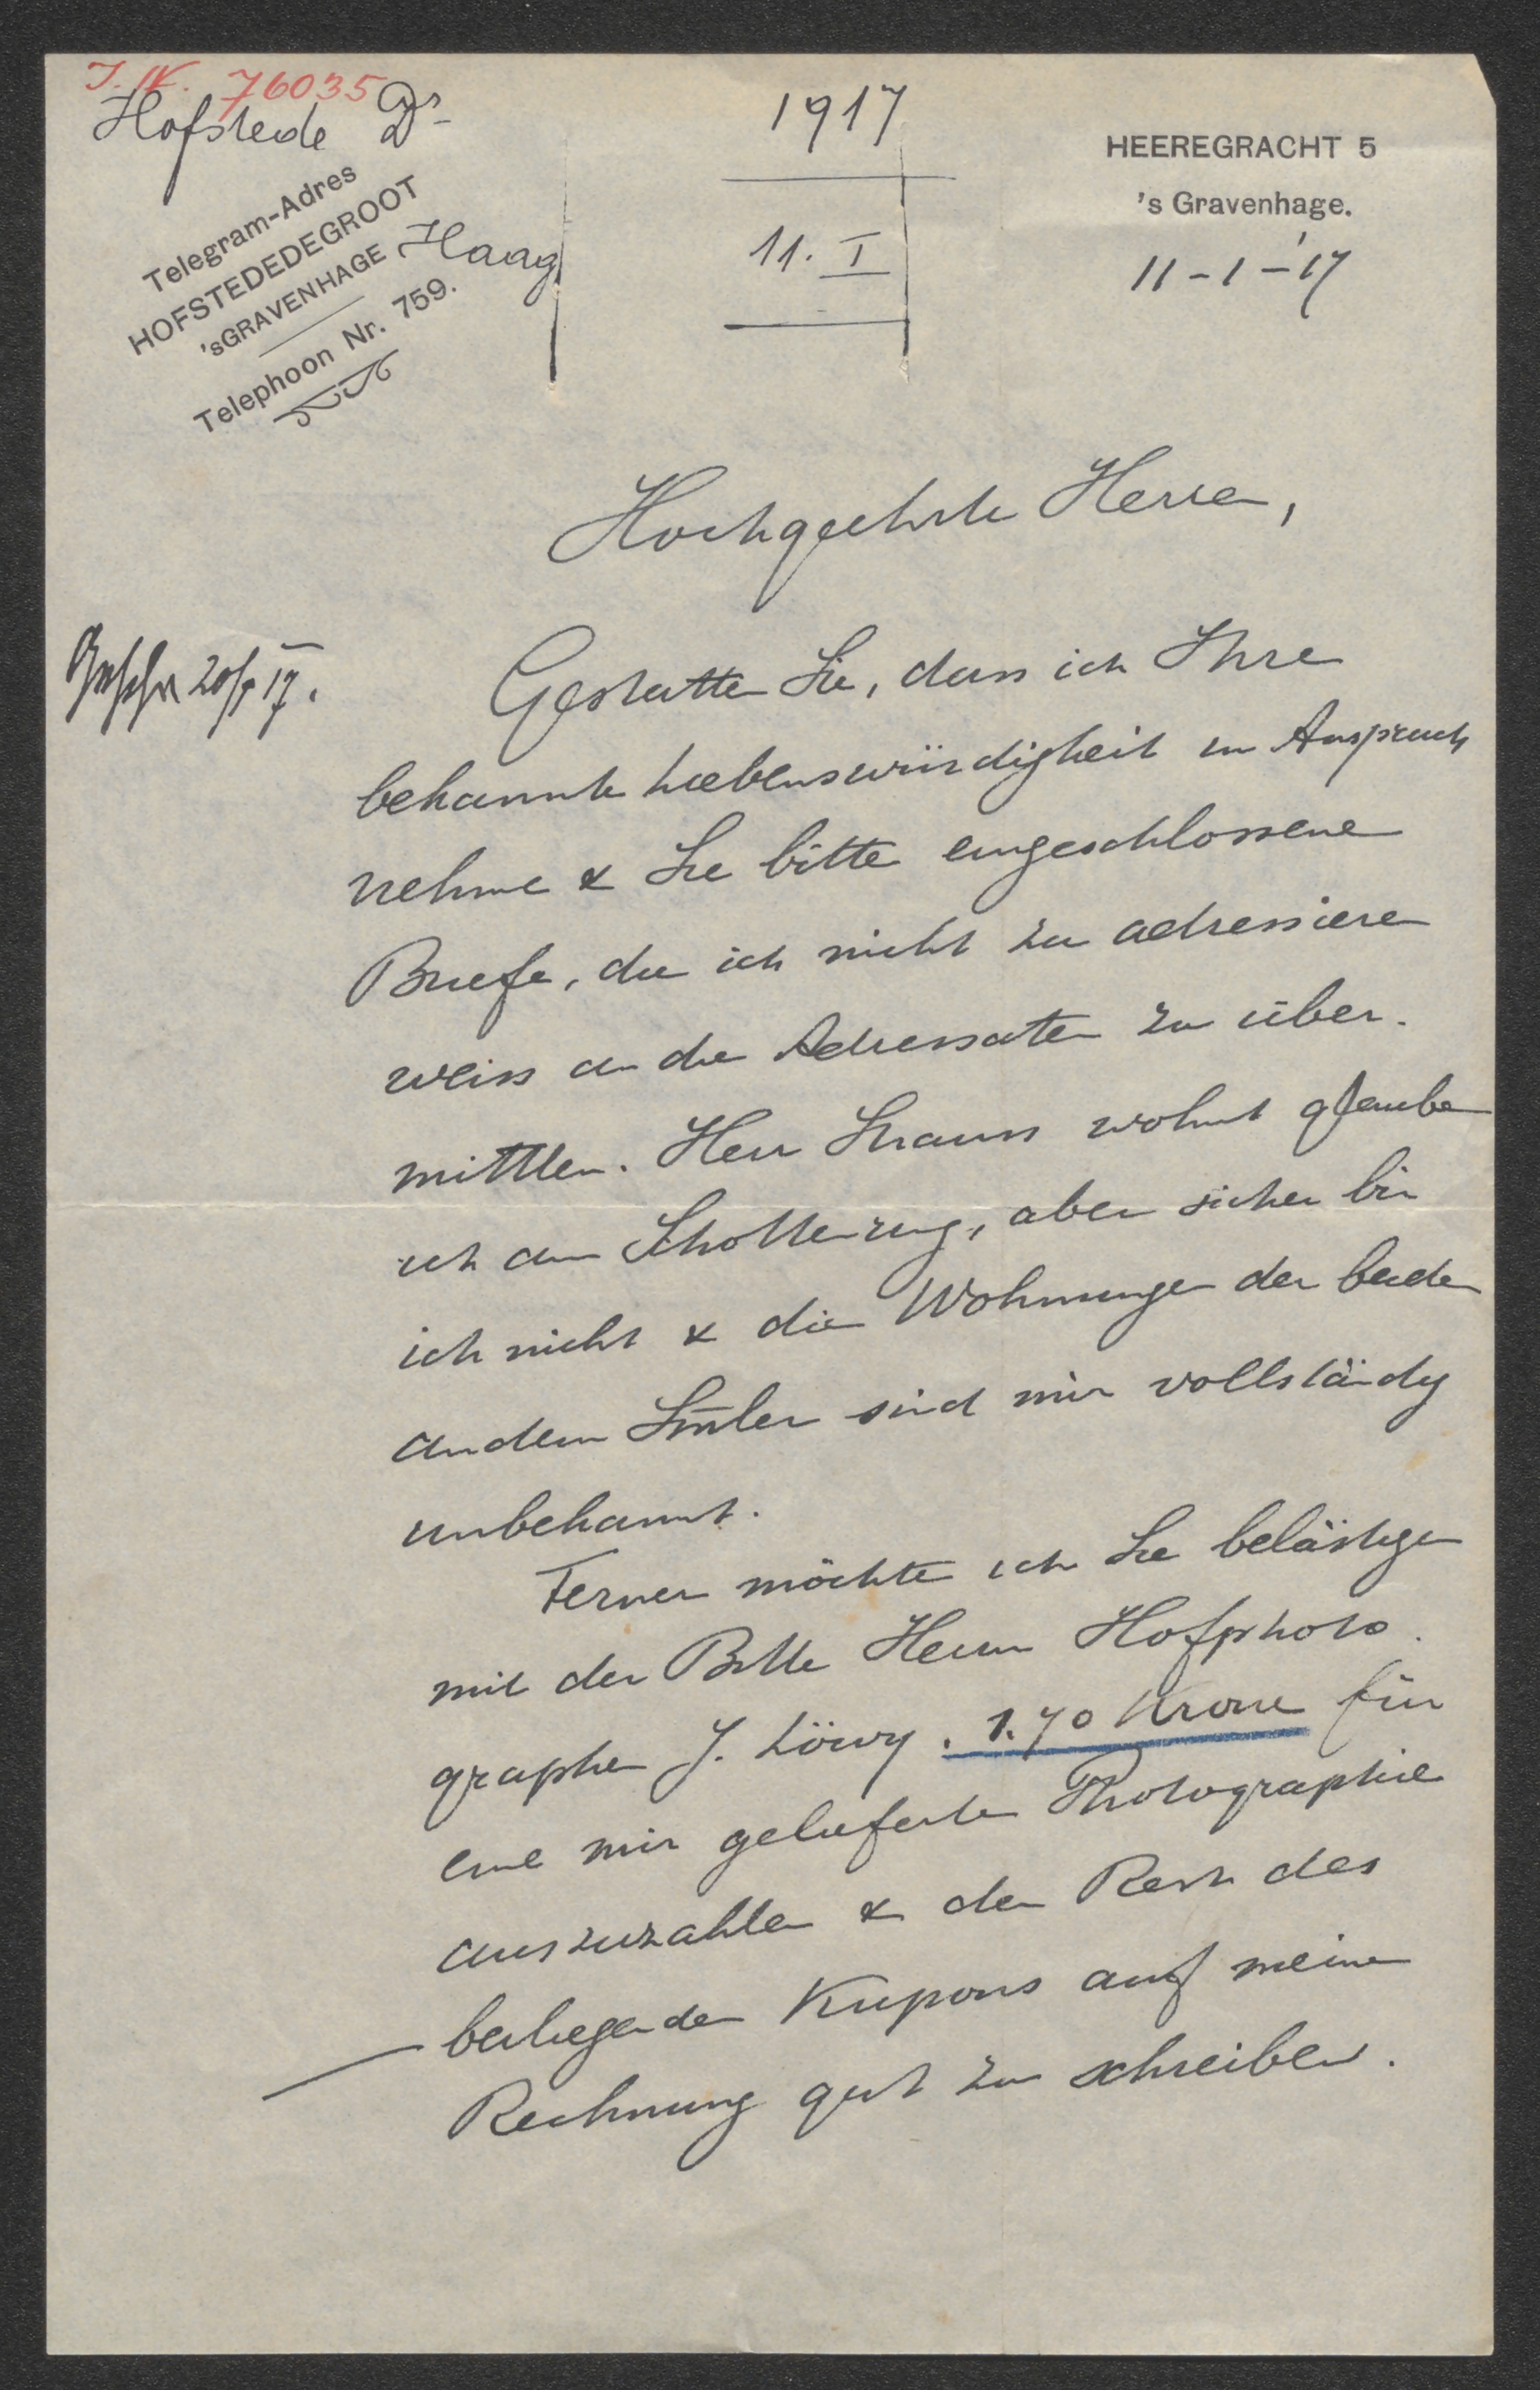 I. N. 76035
Hofstede Dr
Telegram-Adres
HOFSTEDEDEGROOT
'sGRAVENHAGE Haag
Telephoon Nr. 759.
1917
11. I
HEEREGRACHT 5
's Gravenhage.
11-1-'17
Hochgeehrte Herren,
Gestatten Sie, dass ich Ihre
bekannte Liebenswürdigkeit in Anspruch
nehme & Sie bitte eingeschlossene
Briefe, die ich nicht zu adressieren
weiss an die Adressaten zu über-
mitteln. Herr Strauss wohnt glaube
ich am Schottenring, aber sicher bin
ich nicht & die Wohnungen der beiden
andern sind mir vollständig
unbekannt.
Ferner möchte ich Sie belästigen
mit der Bitte Herrn Hofphoto-
graphen J. Löwy. 1.70 Krone für
eine mir gelieferte Photographie
auszuzahlen & den Rest des
beiliegenden Kupons auf meine
Rechnung gut zu schreiben.
20/I 17.